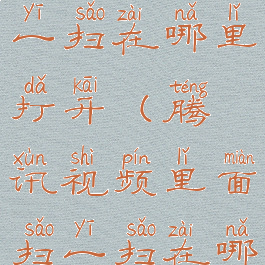 yī sǎo zài nǎ lǐ
一扫在哪里
dǎ kāi téng
打开（腾
xùn shì pín lǐ miàn
讯视频里面
sǎo yī sǎo zài nǎ
扫一扫在哪